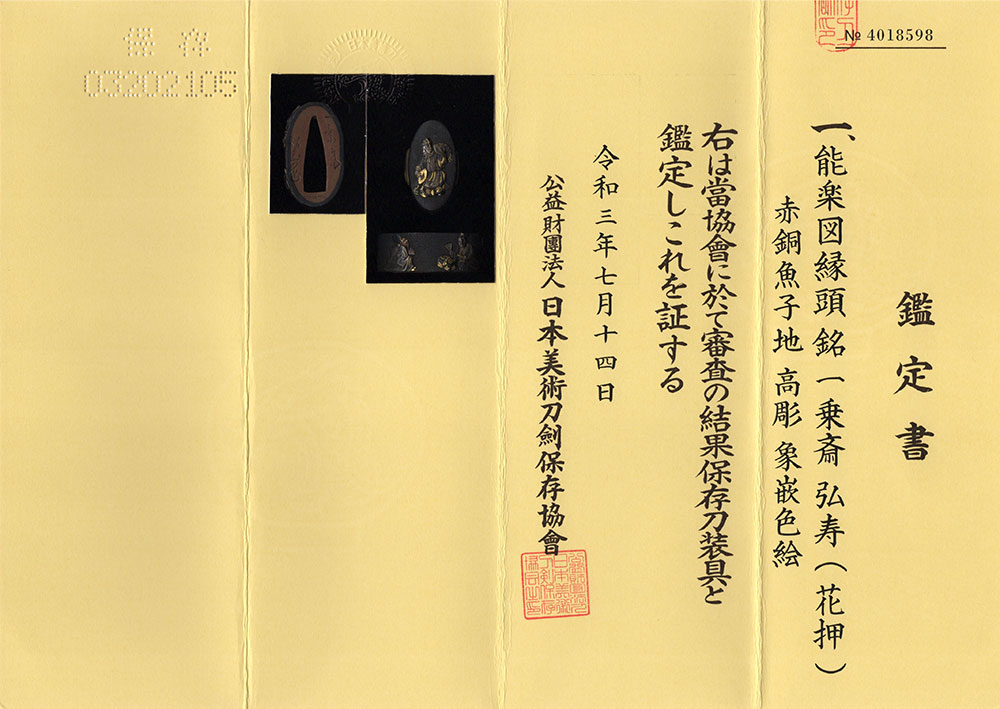 № 4018598
鑑定書
一、能楽図縁頭 銘 一乗斎 弘寿(花押)
赤銅魚子地 高彫 象嵌色絵
右は當協會に於て審査の結果保存刀装具と
鑑定しこれを証する
令和三年七月十四日
公益財團法人 日本美術刀劍保存協會
保存
03202105